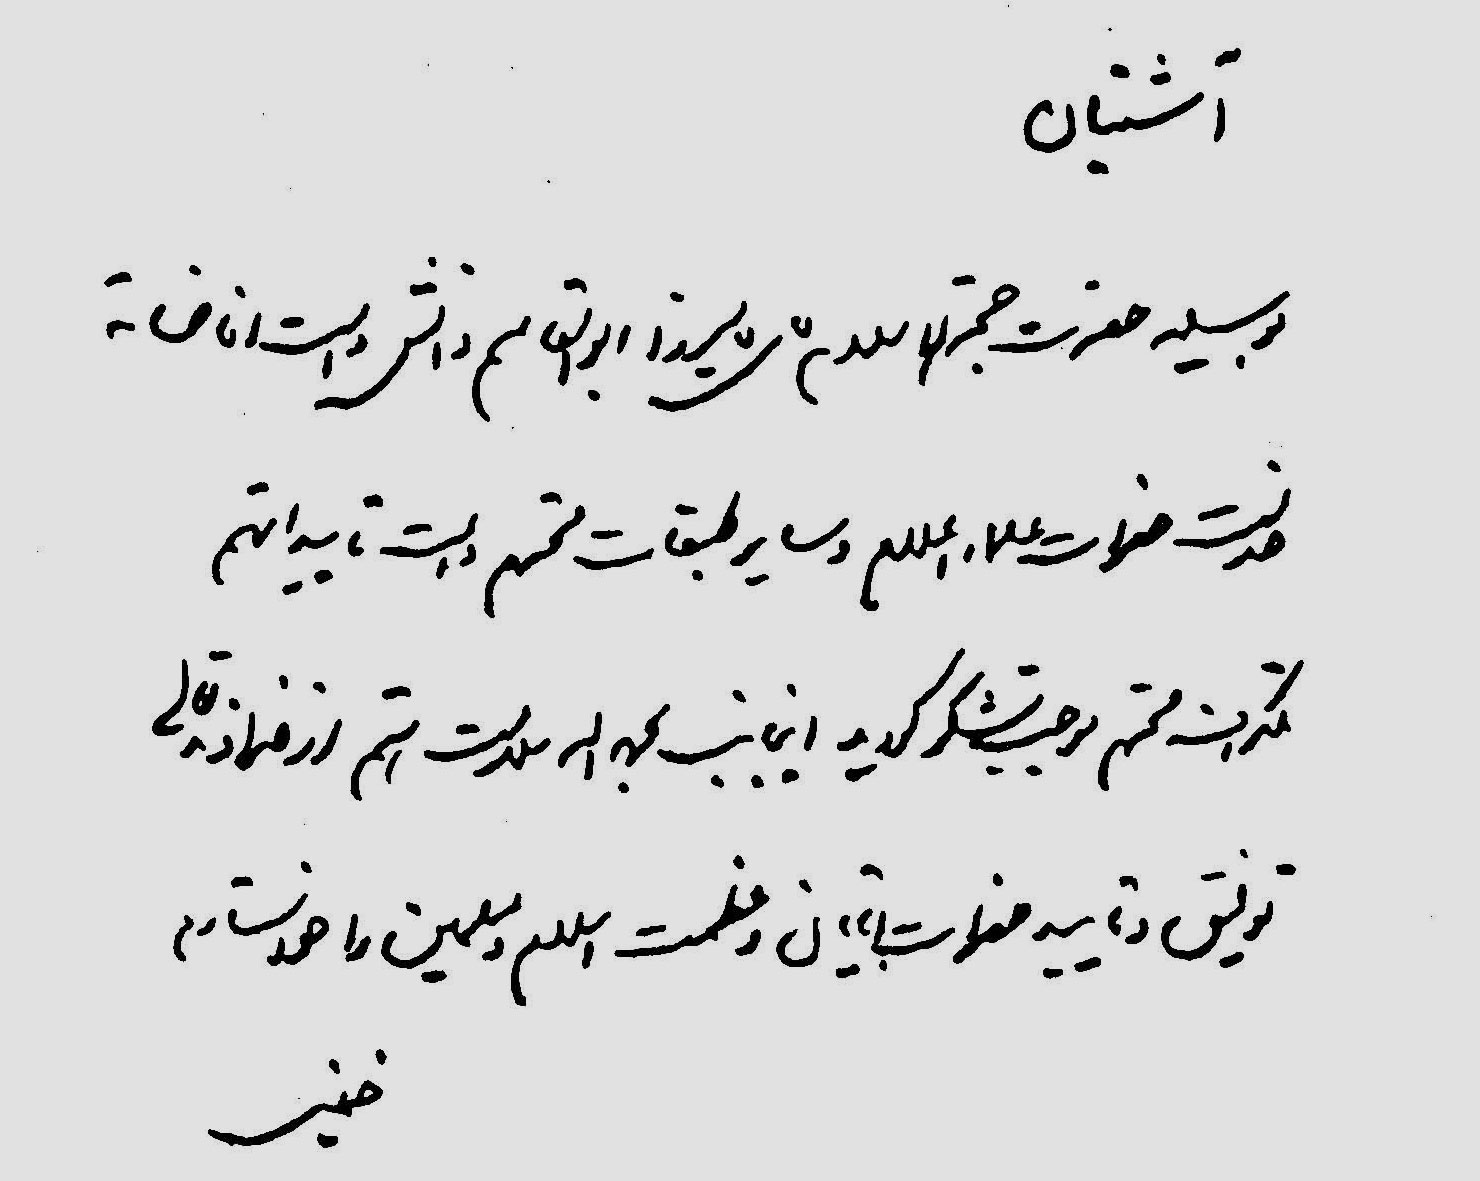 آشتیان
بوسیله حضرت حجة‌الاسلام آقای میرزا ابوالقاسم دانش دامت افاضاته
خدمت حضرات علماء اعلام و سایر طبقات محترم دامت تاییداتهم
تلگراف محترم موجب تشکر گردید اینجانب بحمد اله سلامت هستم از خداوند تعالی
توفیق و تایید حضرات آقایان و عظمت اسلام و مسلمین را خواستارم
خمینی